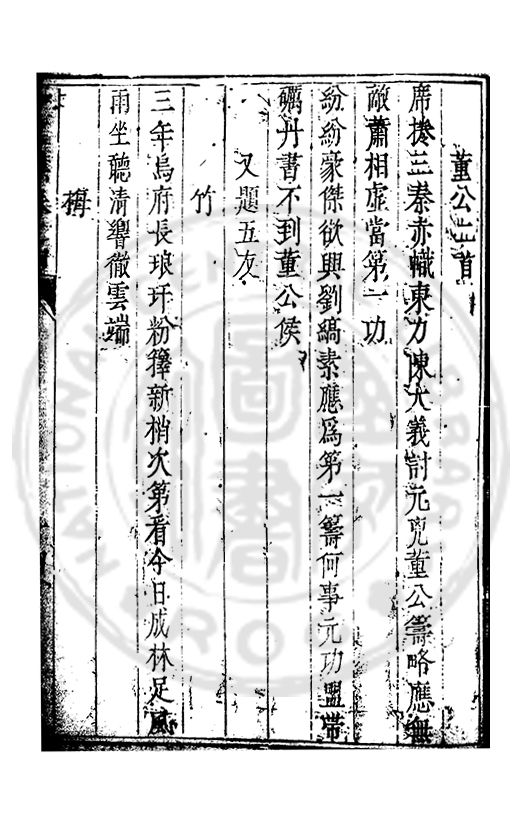 董公二首
席捲三秦赤幟東力陳大義討元兇董公籌略應無
敵蕭相虛當第一功
紛紛豪傑欲興劉縞素應爲第一籌何事元功盟帶
礪丹書不到董公侯
又題五友
竹
三年烏府長琅玕粉籜新梢次第看今日成林足風
雨坐聽清響徹雲端
梅